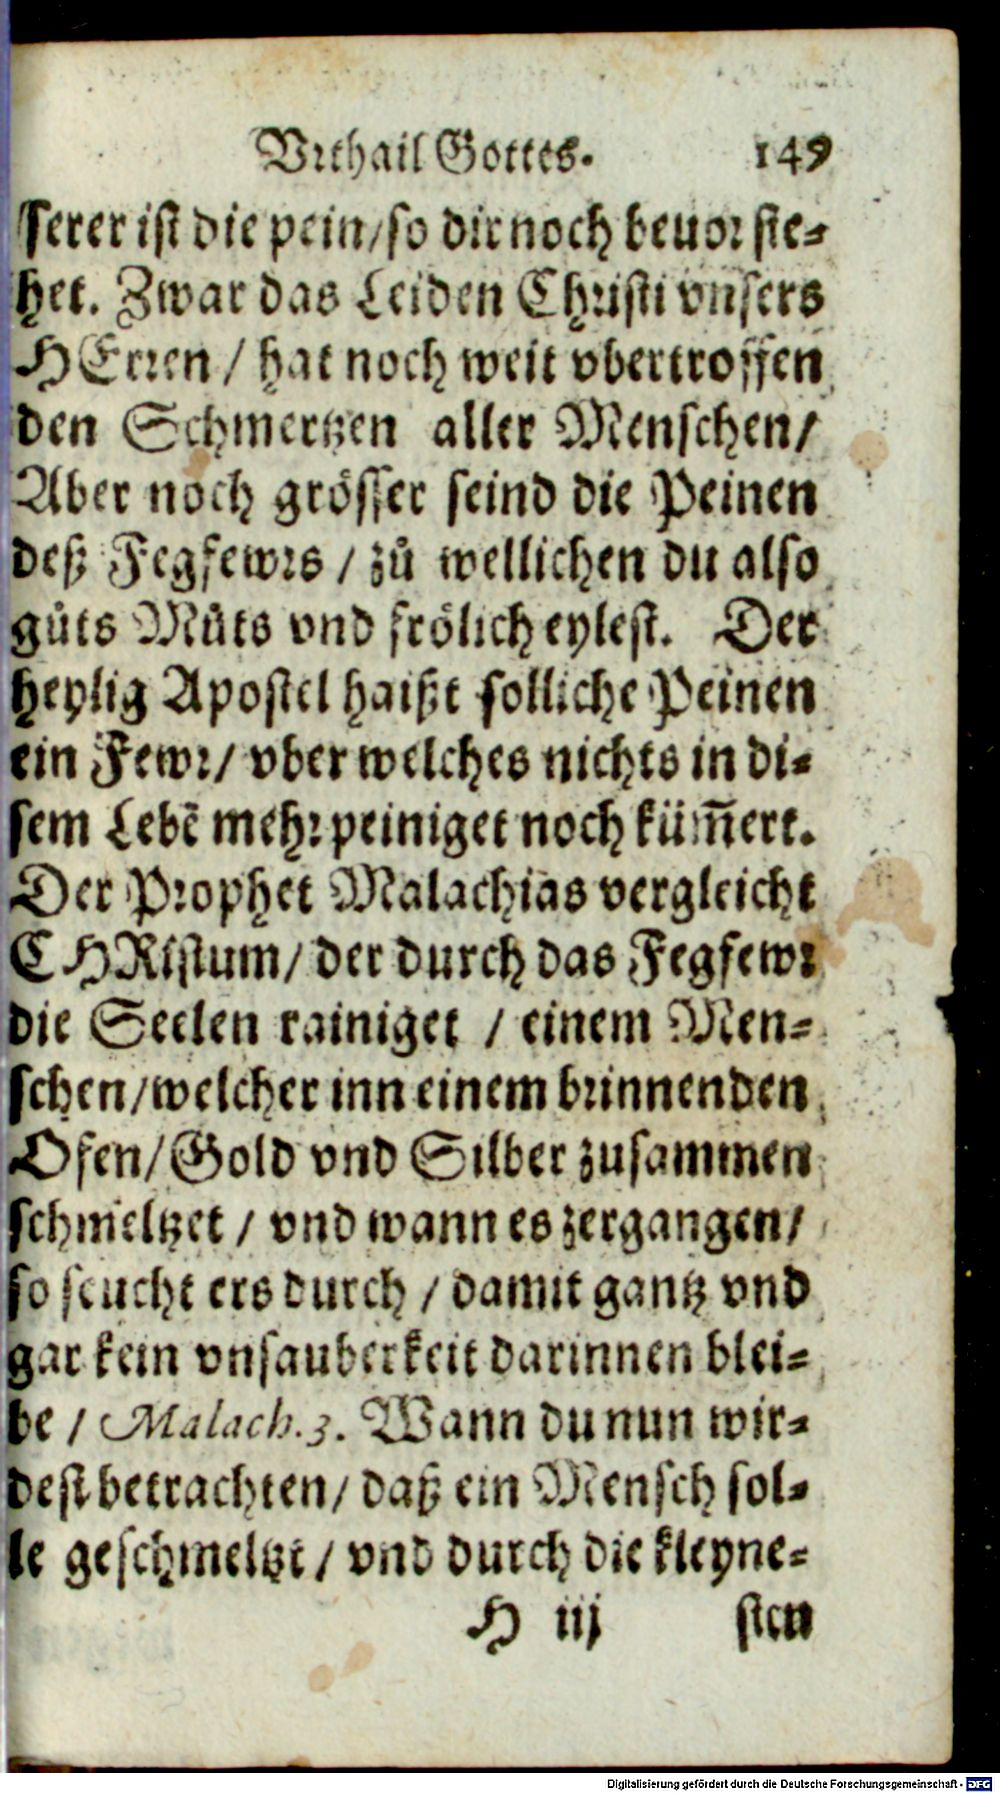 Vrthail Gottes. 149
serer ist die pein/so dir noch beuor ste-
het. Zwar das Leiden Christi vnsers
HErren / hat noch weit vbertroffen
den Schmertzen aller Menschen/
Aber noch grösser seind die Peinen
deß Fegfewrs / zů wellichen du also
gůts Můts vnd frölich eylest. Der
heylig Apostel haißt solliche Peinen
ein Fewr/ vber welches nichts in di-
sem Lebē mehr peiniget noch küm̄ert.
Der Prophet Malachias vergleicht
CHRistum/ der durch das Fegfewr
die Seelen rainiget / einem Men-
schen/welcher inn einem brinnenden
Ofen/Gold vnd Silber zusammen
schmeltzet / vnd wann es zergangen/
so seucht ers durch / damit gantz vnd
gar kein vnsauberkeit darinnen blei-
be / Malach.3. Wann du nun wir-
dest betrachten/ daß ein Mensch sol-
le geschmeltzt / vnd durch die kleyne-
H iij sten
Digitalisierung gefördert durch die Deutsche Forschungsgemeinschaft - DFG